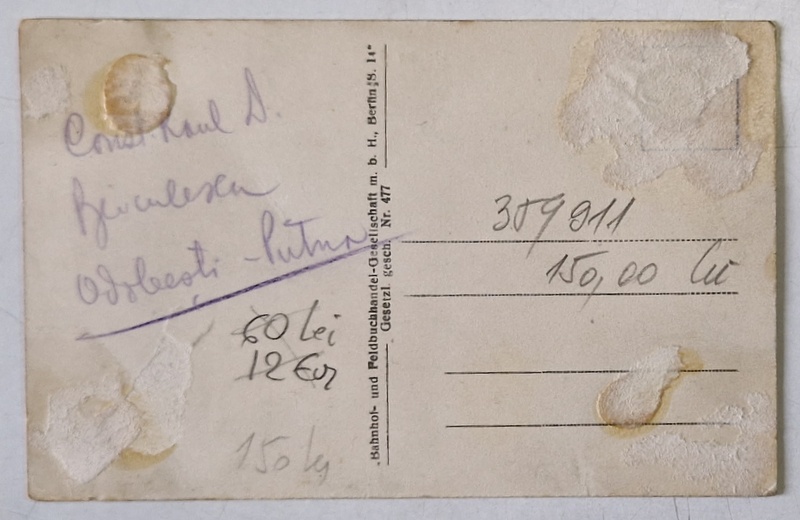 Const. Raul D.
Odobesti - Putna
60 Lei
12 Eur
150 lei
„Bahnhof- und Feldbuchhandel-Gesellschaft m. b. H., Berlin S. 14“
Gesetzl. gesch. Nr. 477
359911
150,00 Lei